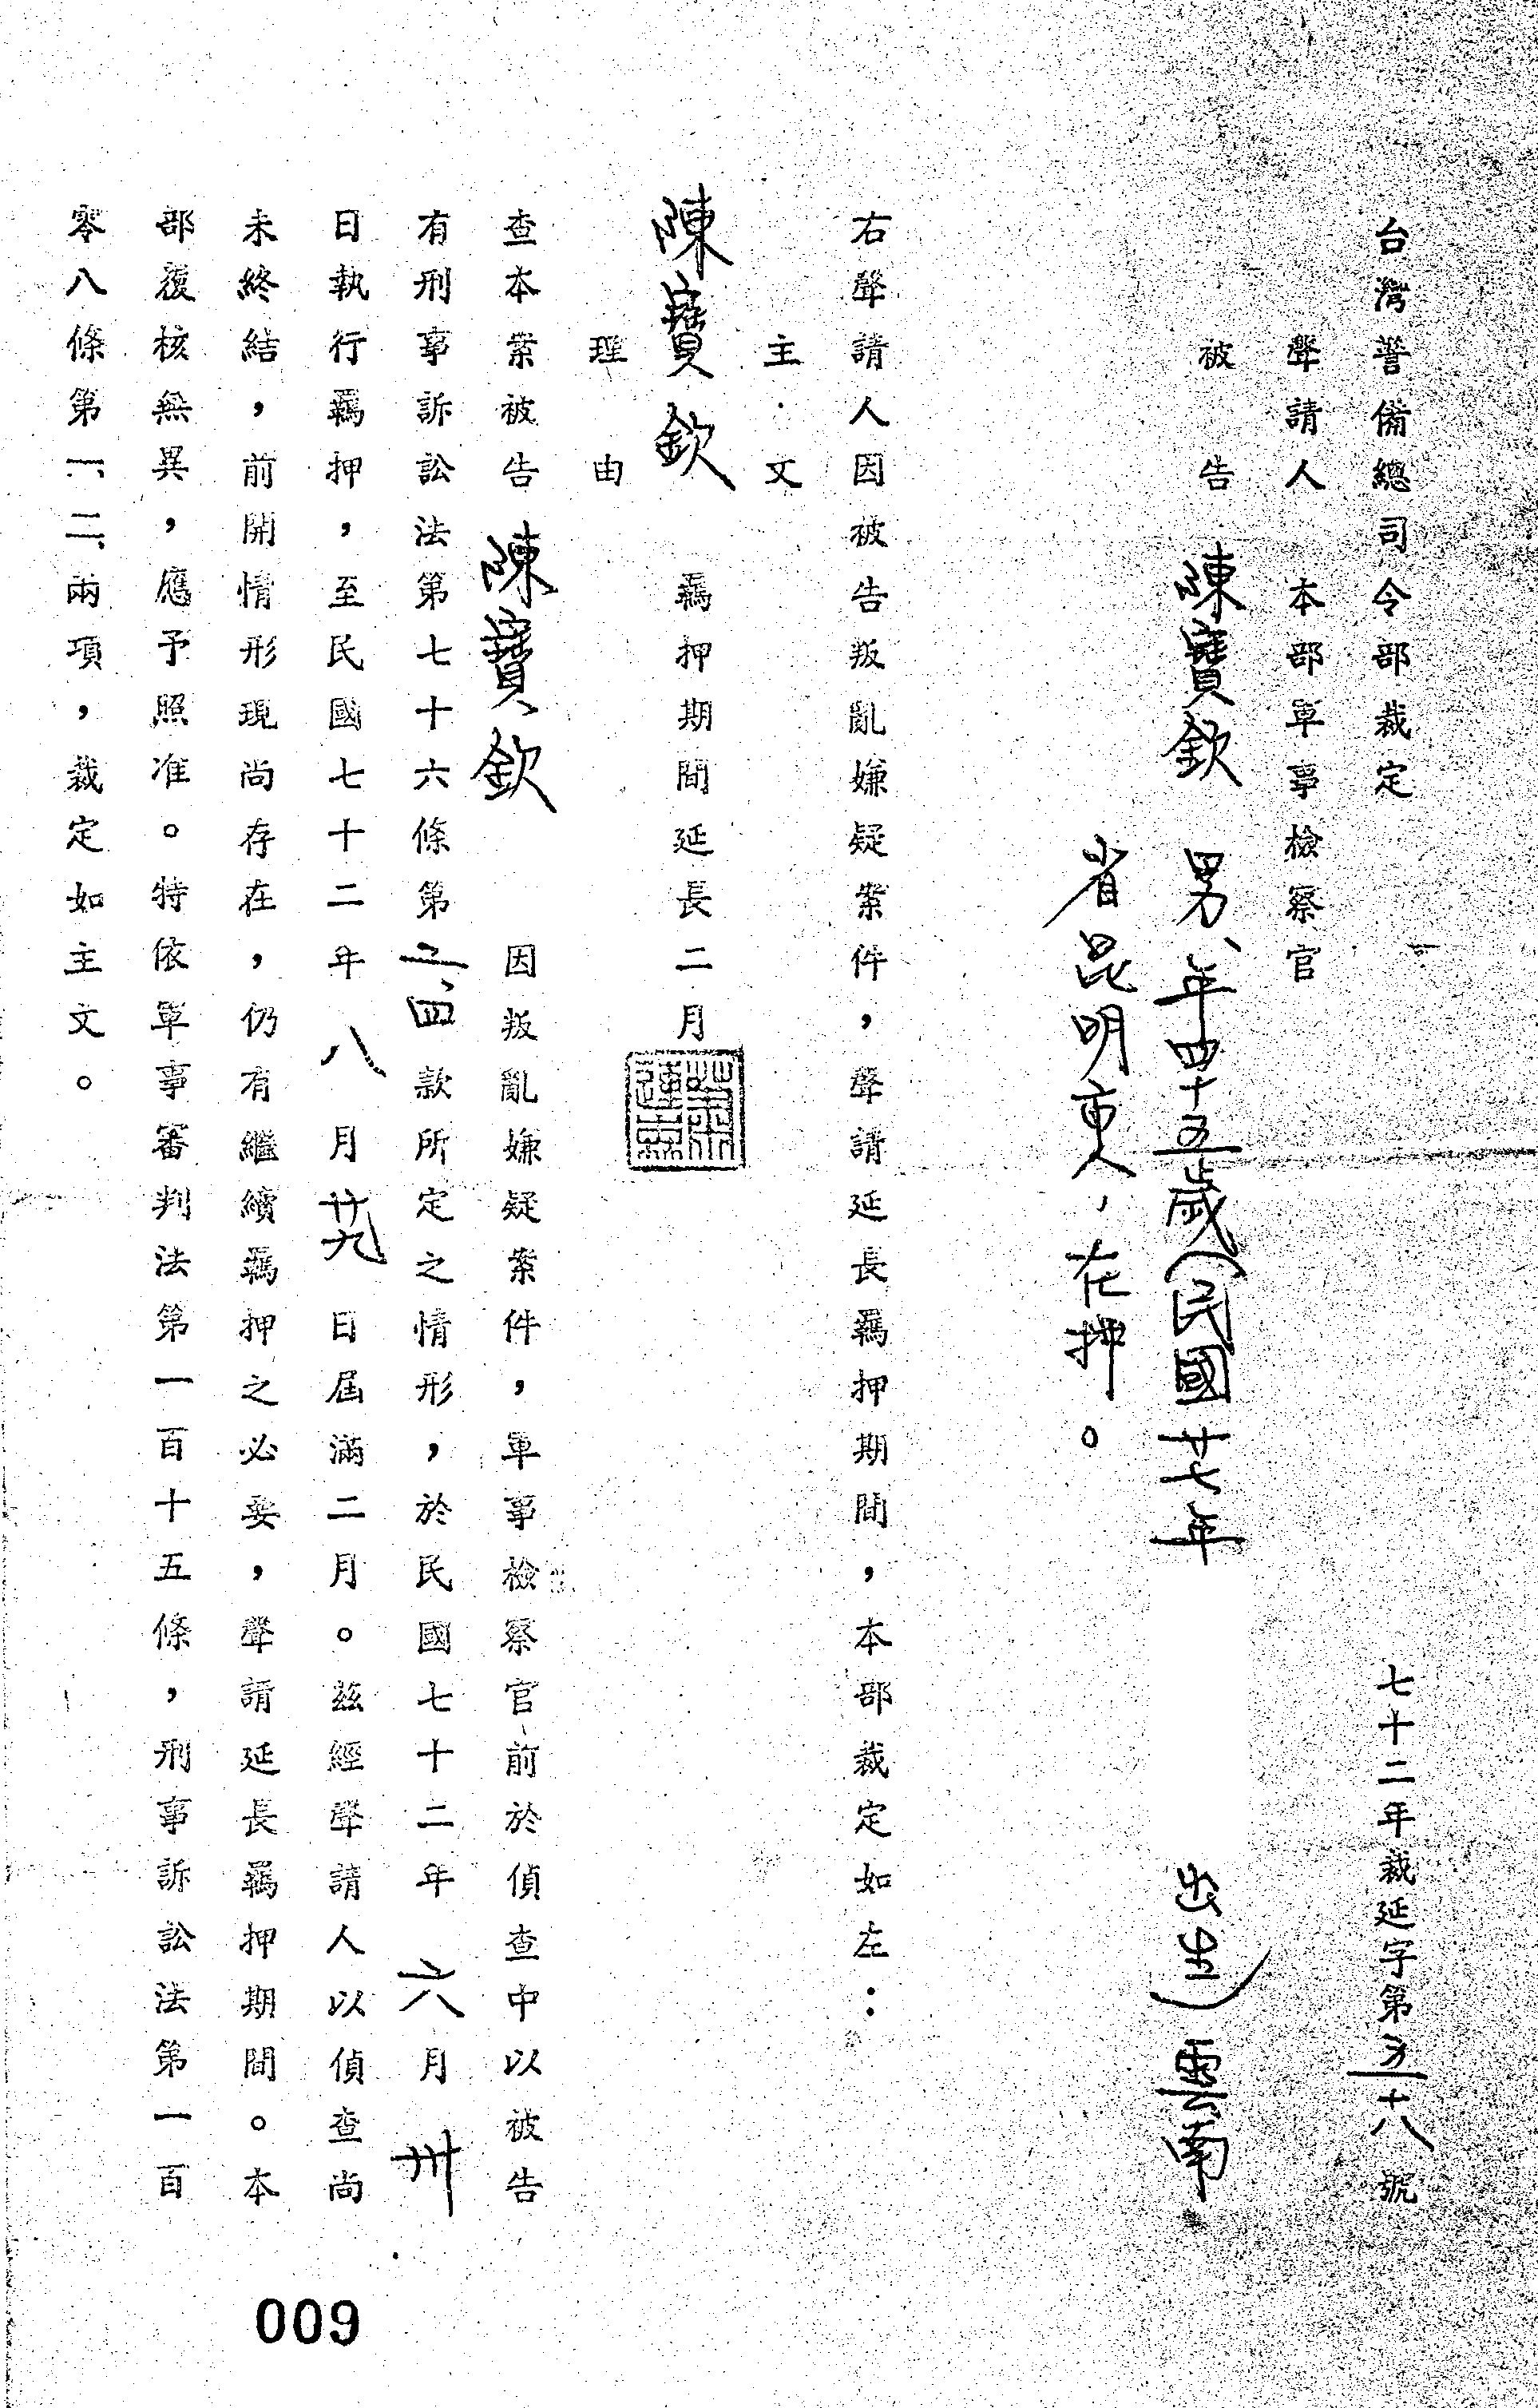 台灣警備總司令部裁定
七十二年裁延字第五十八號
聲請人 本部軍事檢察官
被告 陳寶欽 男、年四十五歲(民國廿七年 出生)雲南
省昆明市人,在押。
右聲請人因被告叛亂嫌疑案件,聲請延長羈押期間,本部裁定如左:
主文
陳寶欽 羈押期間延長二月
理由
查本案被告 陳寶欽 因叛亂嫌疑案件,軍事檢察官前於偵查中以被告
有刑事訴訟法第七十六條第二、四款所定之情形,於民國七十二年六月卅
日執行羈押,至民國七十二年八月廿九日屆滿二月。茲經聲請人以偵查尚
未終結,前開情形現尚存在,仍有繼續羈押之必要,聲請延長羈押期間。本
部覆核無異,應予照准。特依軍事審判法第一百十五條,刑事訴訟法第一百
零八條第一、二、兩項,裁定如主文。
009